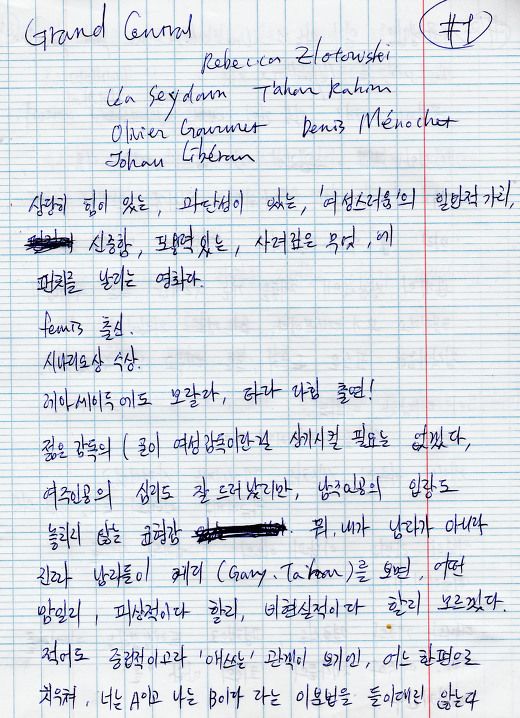 Grand Central
#1
Rebecca Zlotowski
Léa Seydoux Tahar Rahim
Olivier Gourmet Denis Ménochet
Johan Libéreau
상당히 힘이 있는, 과단성이 있는, '여성스러움'의 일반적 가치,
신중함, 포용력있는, 사려깊은 무엇, 에
펀치를 날리는 영화다.
femis 출신.
시나리오상 수상.
레아세이두에도 모잘라, 타라 라힘 출연!
젊은 감독의 ( 굳이 여성감독이란걸 상기시킬 필요는 없겠다,
여주인공의 심리도 잘 드러났지만, 남주인공의 입장도
놓치지 않는 균형감 뭐, 내가 남자가 아니라
진짜 남자들이 게리 (Gary, Tahar)를 보면, 어떤
맘일지, 피상적이다 할지, 비현실적이다 할지 모르겠다.
적어도 중립적이고자 '애쓰는' 관객이 보기엔, 어느 한편으로
치우쳐, 너는 A이고 나는 B이다 라는 이분법을 들이대진 않는다